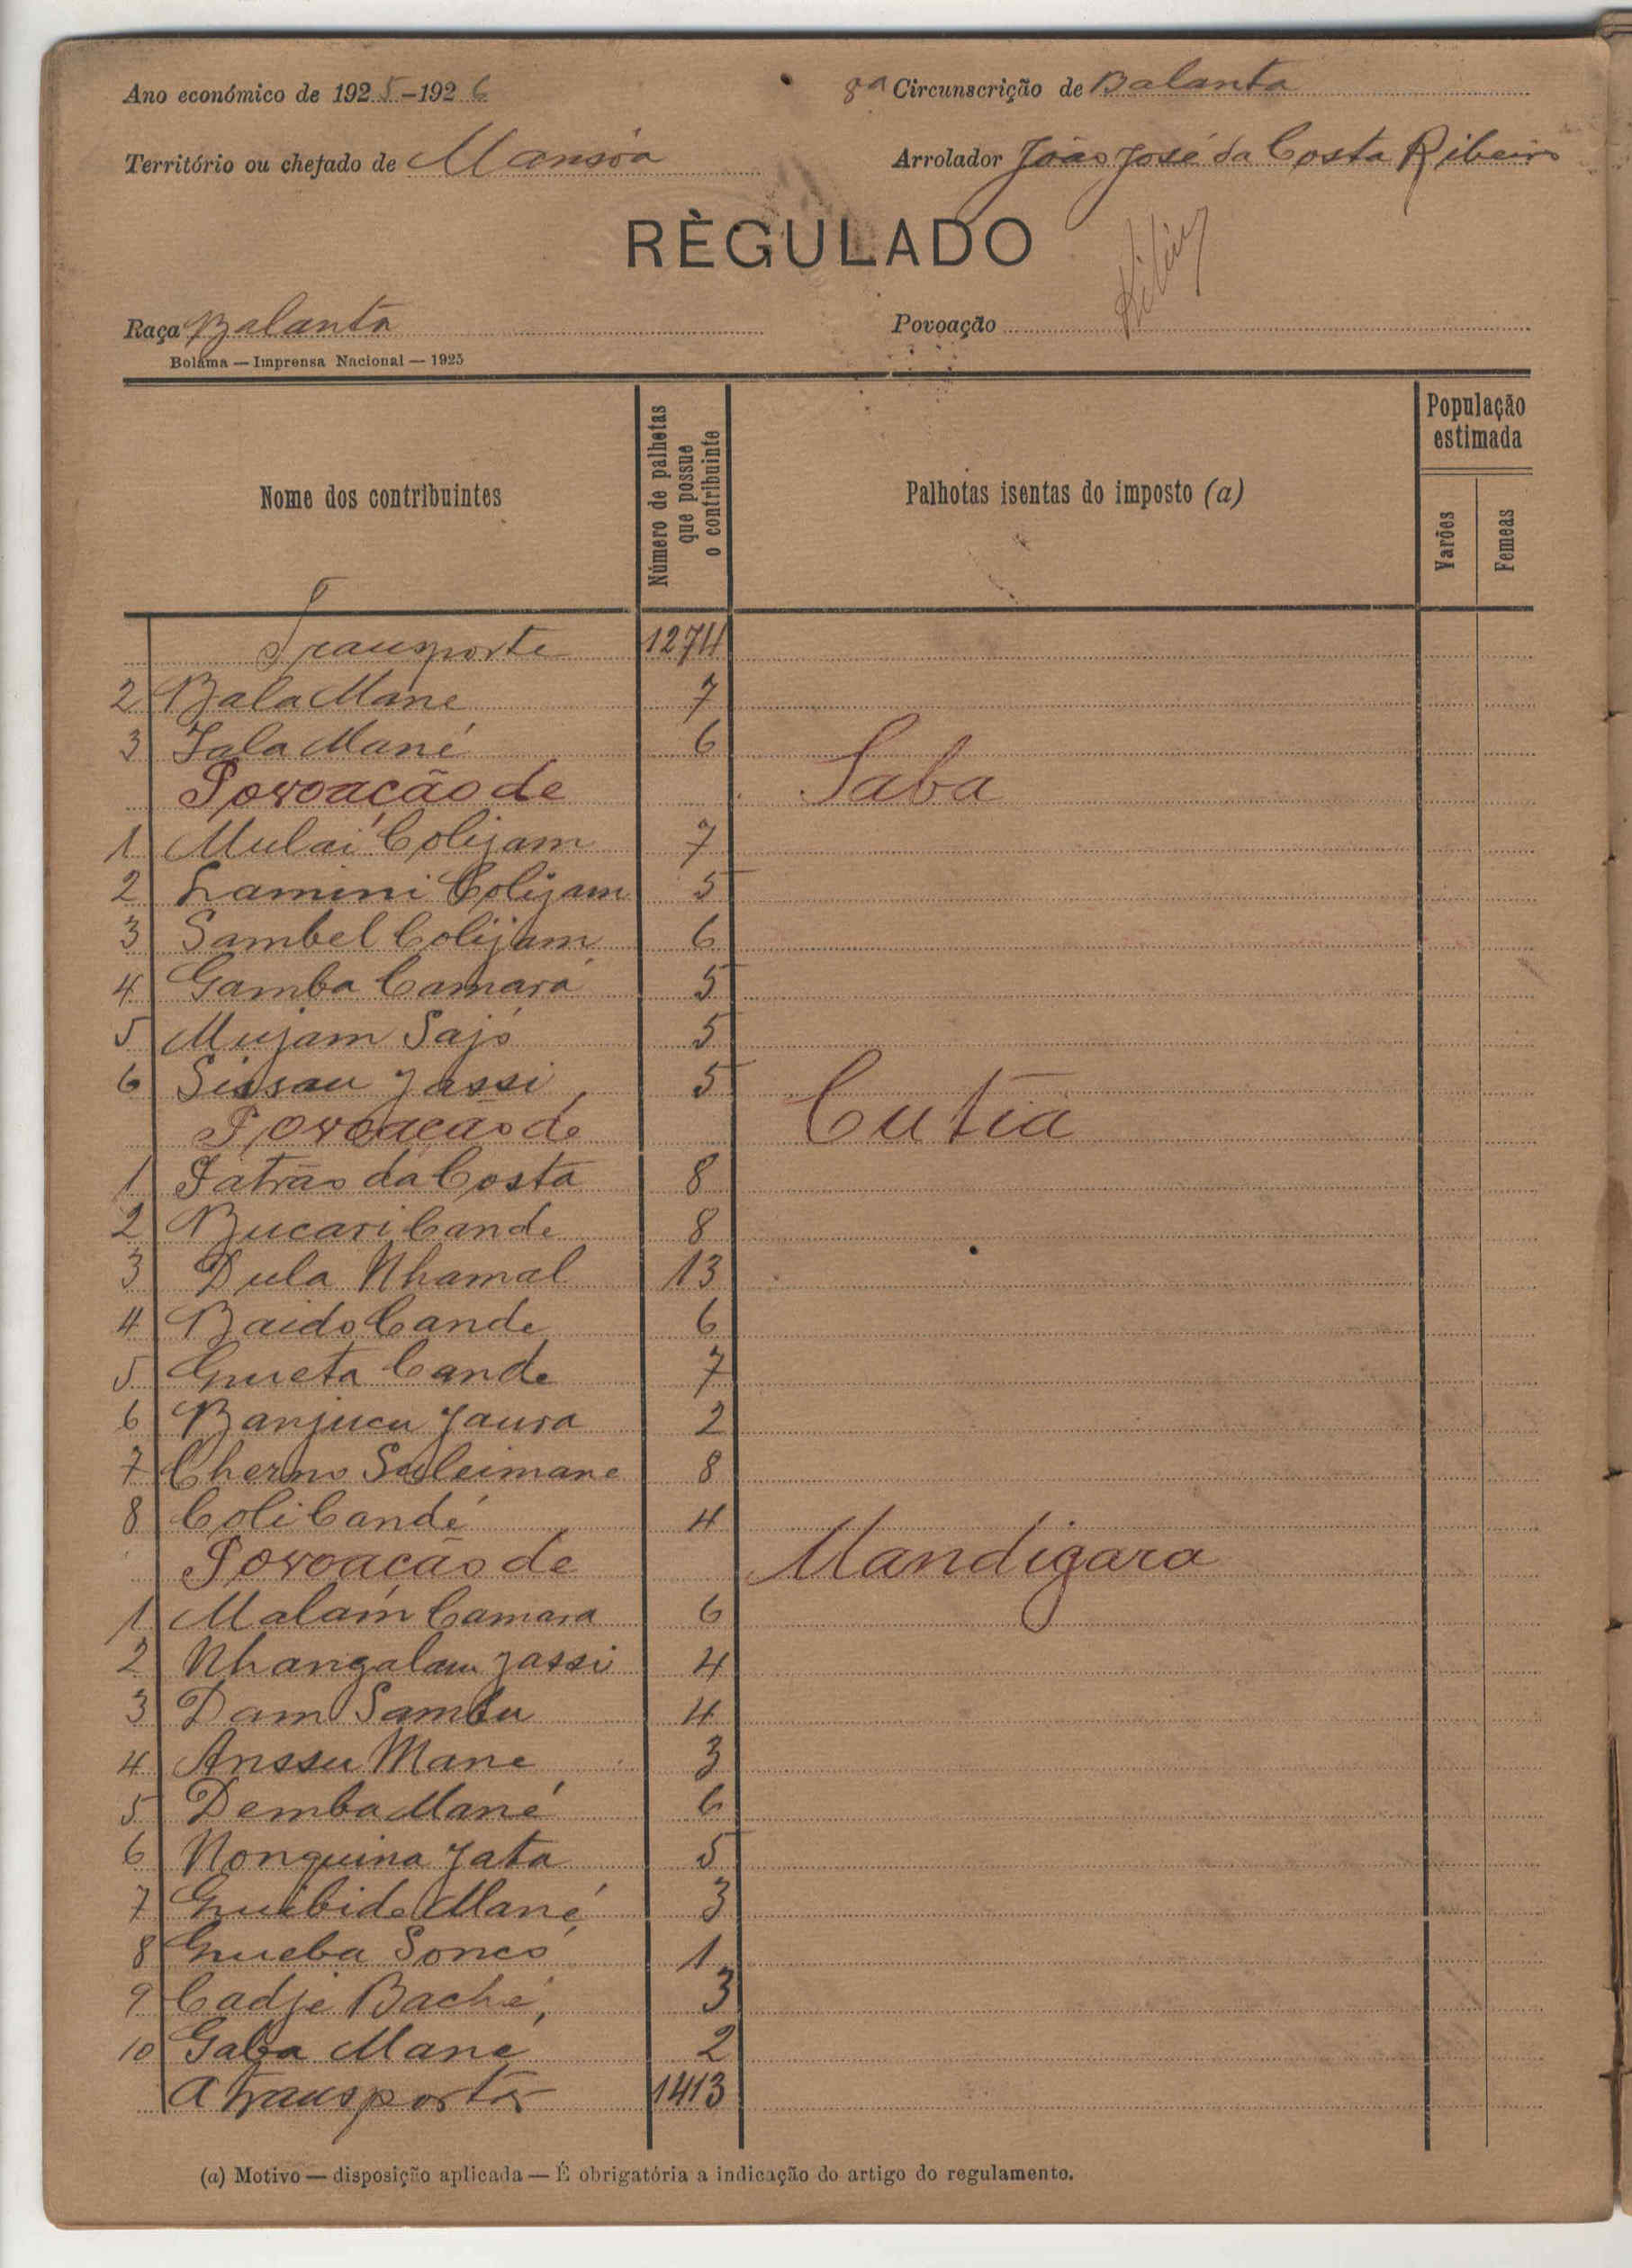 Ano económico de 1925-1926
8ª Circunscrição de Balanta
Território ou chefado de Mansôa
Arrolador João José da Costa Ribeiro
RÈGULADO
Raça Balanta
Povoação
Bolama — Imprensa Nacional — 1925
Nome dos contribuintes
Número de palhotas que possue o contribuinte
Palhotas isentas do imposto (a)
População estimada
Varões
Femeas
Transporte 1274
2 Bala Mané 7
3 Jala Mané 6
Povoação de Saba
1 Mulai Colijam 7
2 Lamini Colijam 5
3 Sambel Colijam 6
4 Gamba Camará 5
5 Mujam Sajó 5
6 Sissau Jassi 5
Povoação de Cutiá
1 Patrão da Costa 8
2 Bucari Cande 8
3 Dula Nhamal 13
4 Baido Cande 6
5 Gueta Cande 7
6 Banjucu Jaura 2
7 Cherno Suleimane 8
8 Coli Candé 4
Povoação de Mandigara
1 Malam Camara 6
2 Nhangalam Jassi 4
3 Dam Sambu 4
4 Anssu Mane 3
5 Demba Mané 6
6 Nonquina Jata 5
7 Guebido Mané 3
8 Gueba Soncó 1
9 Cadje Baché 3
10 Gaba Mané 2
A transportar 1413
(a) Motivo — disposição aplicada — É obrigatória a indicação do artigo do regulamento.